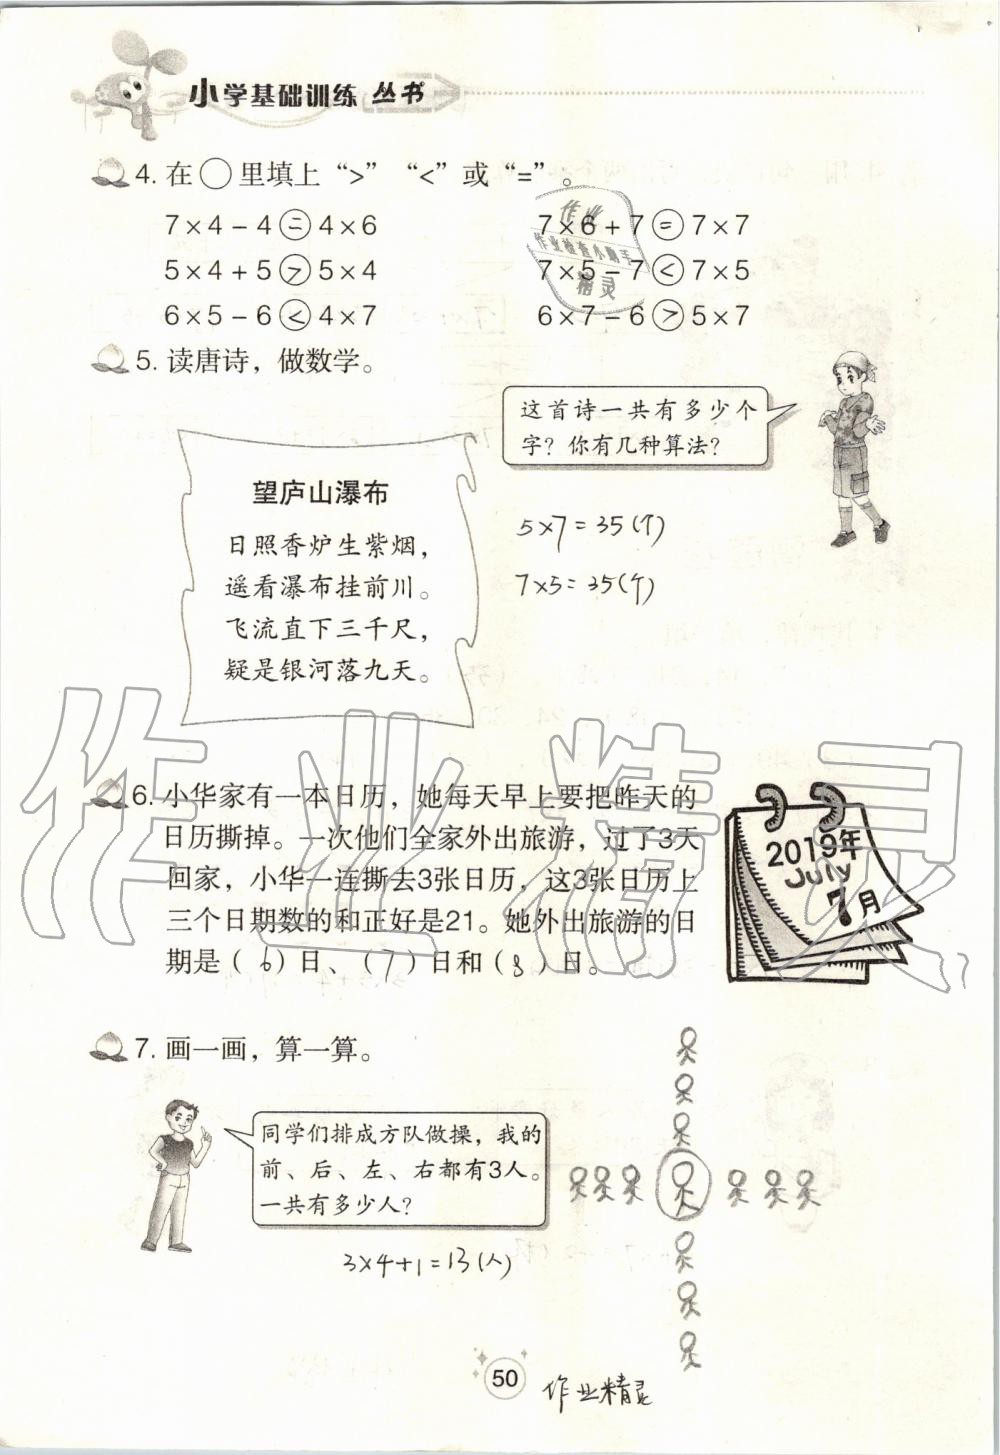 小学基础训练 丛书
4. 在○里填上“>”“<”或“=”。
7×4-4=4×6 7×6+7=7×7
5×4+5>5×4 7×5-7<7×5
6×5-6<4×7 6×7-6>5×7
作业
作业检查小助手
精灵
5. 读唐诗，做数学。
这首诗一共有多少个
字？你有几种算法？
望庐山瀑布
日照香炉生紫烟，
遥看瀑布挂前川。
飞流直下三千尺，
疑是银河落九天。
5×7=35(个)
7×5=35(个)
作业精灵
6. 小华家有一本日历，她每天早上要把昨天的
日历撕掉。一次他们全家外出旅游，过了3天
回家，小华一连撕去3张日历，这3张日历上
三个日期数的和正好是21。她外出旅游的日
期是（6）日、（7）日和（8）日。
2019年
July
7月
7. 画一画，算一算。
同学们排成方队做操，我的
前、后、左、右都有3人。
一共有多少人？
3×4+1=13(人)
50
作业精灵